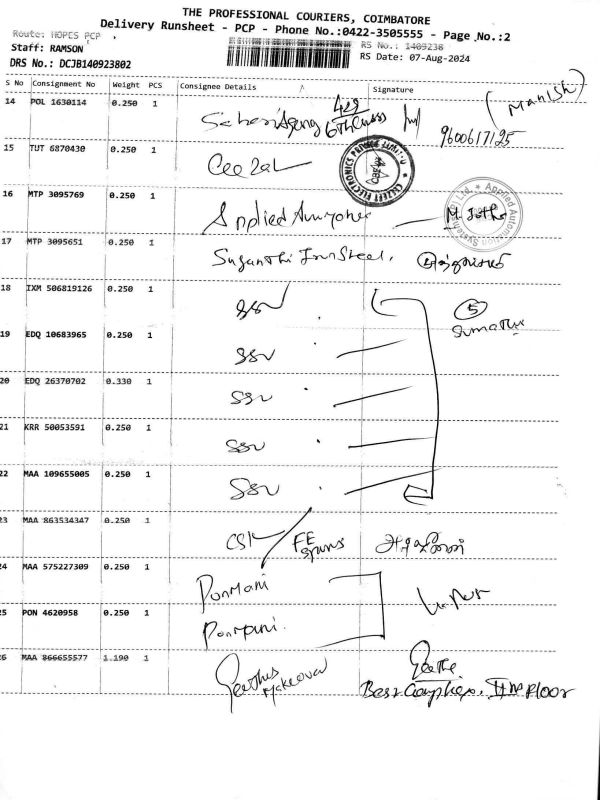 THE PROFESSIONAL COURIERS, COIMBATORE
Delivery Runsheet - PCP - Phone No.:0422-3505555 - Page No.:2
Route: HOPES PCP
RS No.: 1409238
Staff: RAMSON
RS Date: 07-Aug-2024
DRS No.: DCJB140923802
S No Consignment No Weight PCS Consignee Details Signature
14 POL 1630114 0.250 1 (Manish) 9600617125
15 TUT 6870430 0.250 1
16 MTP 3095769 0.250 1 Applied
17 MTP 3095651 0.250 1 Suganthi Iron Steel,
18 IXM 506819126 0.250 1 SSV 5
19 EDQ 10683965 0.250 1 SSV
20 EDQ 26370702 0.330 1 SSV
21 KRR 50053591 0.250 1 SSV
22 MAA 109655005 0.250 1 SSV
23 MAA 863534347 0.250 1 FE
24 MAA 575227309 0.250 1 Ponmani
25 PON 4620958 0.250 1 Ponmani
26 MAA 866655577 1.190 1 Geethus Makeover Geethe
Best Complex, IInd Floor